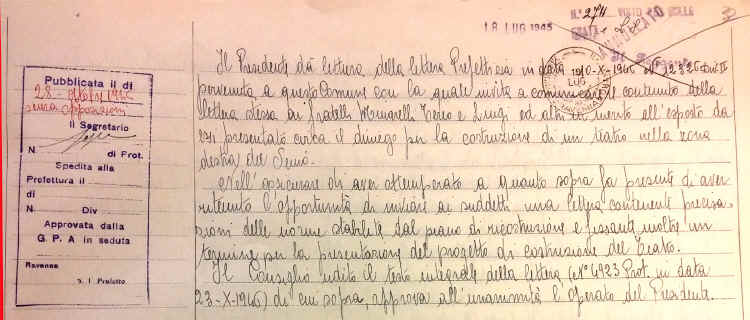 18 LUG 1945
N.° 274 VISTO PER BOLLO
GRATIS
ANNULLATO
Pubblicata il di
28 - ottobre 1946
senza opposizioni
Il Segretario
N di Prot.
Spedita alla
Prefettura il
di
N Div
Approvata dalla
G. P. A in seduta
Ravenna
p. Il Prefetto
Il Presidente dà lettura della lettera Prefettizia in data
10-X-1946 N° Div. II
pervenuta a questo Comune con la quale invita a comunicare il contenuto della
lettera stessa ai fratelli e Luigi ed altri in merito all'esposto da
essi presentato circa il diniego per la costruzione di un teatro nella zona
destra del Senio.
Nell'assicurare di aver ottemperato a quanto sopra fa presente di aver
ritenuto l'opportunità di inviare ai suddetti una lettera contenente precisa-
zioni delle norme stabilite dal piano di ricostruzione e fissante inoltre un
termine per la presentazione del progetto di costruzione del Teatro.
Il Consiglio udito il testo integrale della lettera (N° 4923 Prot. in data
23-X-1946) di cui sopra, approva all'unanimità l'operato del Presidente.